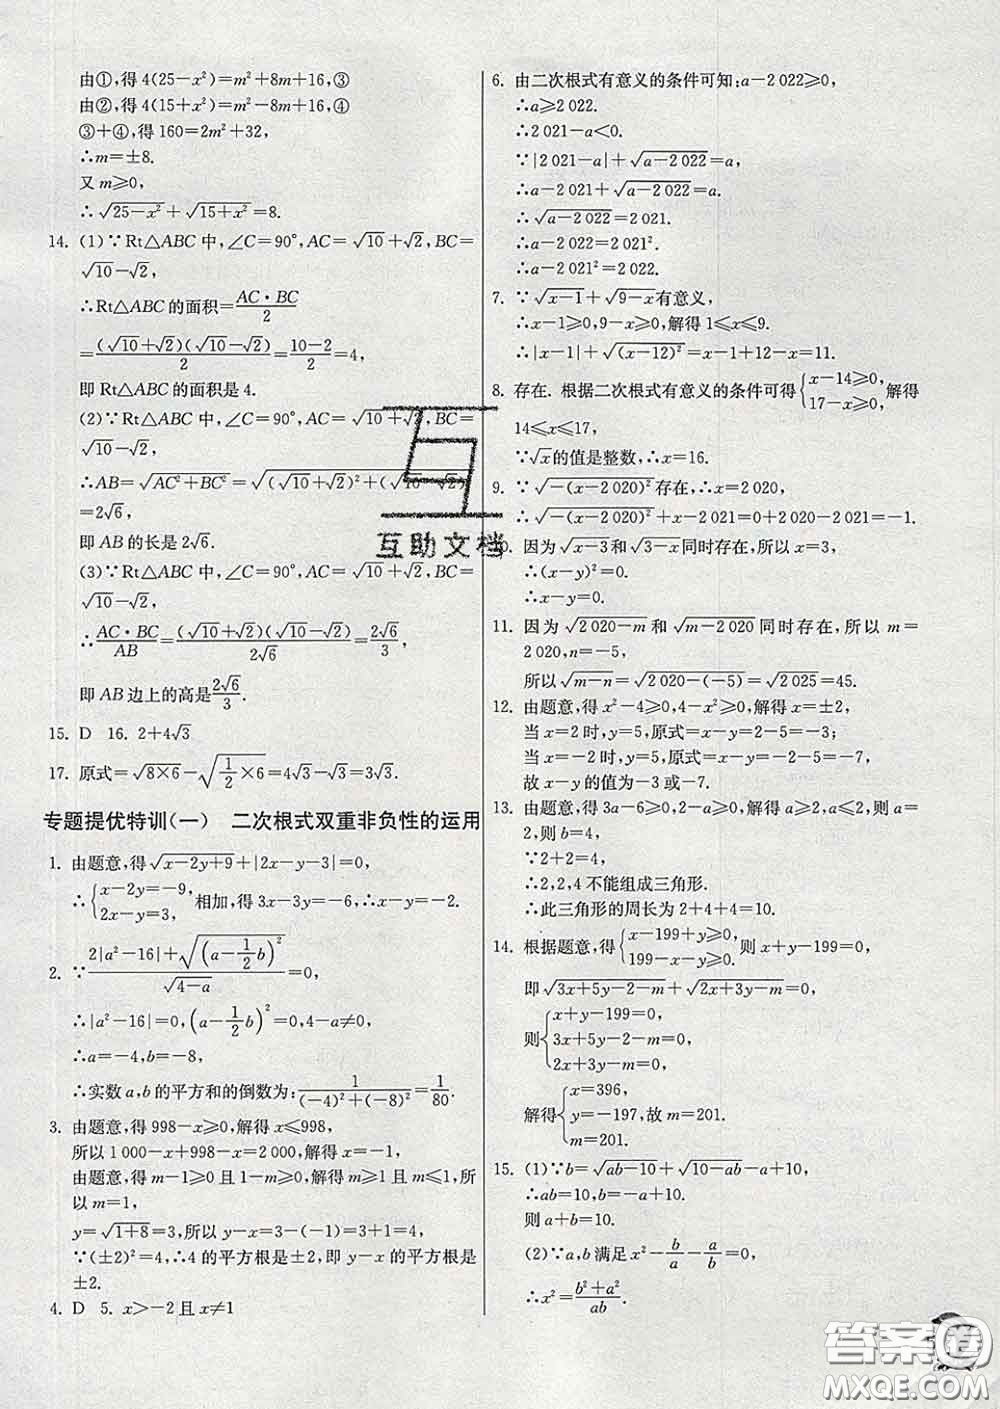 由①,得4(25-x²)=m²+8m+16,③
由②,得4(15+x²)=m²-8m+16,④
③+④,得160=2m²+32,
∴m=±8.
又m≥0,
∴√(25-x²)+√(15+x²)=8.
14. (1)∵Rt△ABC中,∠C=90°,AC=√10+√2,BC=
√10-√2,
∴Rt△ABC的面积=AC·BC/2
=(√10+√2)(√10-√2)/2=(10-2)/2=4,
即Rt△ABC的面积是4.
(2)∵Rt△ABC中,∠C=90°,AC=√10+√2,BC=
√10-√2,
∴AB=√(AC²+BC²)=√((√10+√2)²+(√10-√2)²)
=2√6,
即AB的长是2√6.
(3)∵Rt△ABC中,∠C=90°,AC=√10+√2,BC=
√10-√2,
∴AC·BC/AB=(√10+√2)(√10-√2)/2√6=2√6/3,
即AB边上的高是2√6/3.
15. D 16. 2+4√3
17. 原式=√(8×6)-√(1/2×6)=4√3-√3=3√3.
专题提优特训(一) 二次根式双重非负性的运用
1. 由题意,得√(x-2y+9)+|2x-y-3|=0,
∴{x-2y=-9, 2x-y=3, 相加,得3x-3y=-6,∴x-y=-2.
2. ∵(2|a²-16|+√((a-1/2b)²))/√(4-a)=0,
∴|a²-16|=0,(a-1/2b)²=0,4-a≠0,
∴a=-4,b=-8,
∴实数a,b的平方和的倒数为:1/((-4)²+(-8)²)=1/80.
3. 由题意,得998-x≥0,解得x≤998,
所以1 000-x+998-x=2 000,解得x=-1,
由题意,得m-1≥0且1-m≥0,解得m≥1且m≤1,所
以m=1,
y=√(1+8)=3,所以y-x=3-(-1)=3+1=4,
∵(±2)²=4,∴4的平方根是±2,即y-x的平方根是
±2.
4. D 5. x>-2且x≠1
6. 由二次根式有意义的条件可知:a-2 022≥0,
∴a≥2 022.
∴2 021-a<0.
∵|2 021-a|+√(a-2 022)=a,
∴a-2 021+√(a-2 022)=a.
∴√(a-2 022)=2 021.
∴a-2 022=2 021².
∴a-2 021²=2 022.
7. ∵√(x-1)+√(9-x)有意义,
∴x-1≥0,9-x≥0,解得1≤x≤9.
∴|x-1|+√((x-12)²)=x-1+12-x=11.
8. 存在. 根据二次根式有意义的条件可得{x-14≥0, 17-x≥0, 解得
14≤x≤17,
∵√x的值是整数,∴x=16.
9. ∵√(-(x-2 020)²)存在,∴x=2 020,
∴√(-(x-2 020)²)+x-2 021=0+2 020-2 021=-1.
0. 因为√(x-3)和√(3-x)同时存在,所以x=3,
∴(x-y)²=0.
∴x-y=0.
11. 因为√(2 020-m)和√(m-2 020)同时存在,所以m=
2 020,n=-5,
所以√(m-n)=√(2 020-(-5))=√2 025=45.
12. 由题意,得x²-4≥0,4-x²≥0,解得x=±2,
当x=2时,y=5,原式=x-y=2-5=-3;
当x=-2时,y=5,原式=x-y=-2-5=-7,
故x-y的值为-3或-7.
13. 由题意,得3a-6≥0,2-a≥0,解得a≥2,a≤2,则a=
2,则b=4,
∵2+2=4,
∴2,2,4不能组成三角形.
∴此三角形的周长为2+4+4=10.
14. 根据题意,得{x-199+y≥0, 199-x-y≥0, 则x+y-199=0,
即√(3x+5y-2-m)+√(2x+3y-m)=0,
则{x+y-199=0, 3x+5y-2-m=0, 2x+3y-m=0,
解得{x=396, y=-197,故m=201. m=201.
15. (1)∵b=√(ab-10)+√(10-ab)-a+10,
∴ab=10,b=-a+10.
则a+b=10.
(2)∵a,b满足x²-b/a-a/b=0,
∴x²=(b²+a²)/ab.
互助文档
答案圈
MXQE.COM